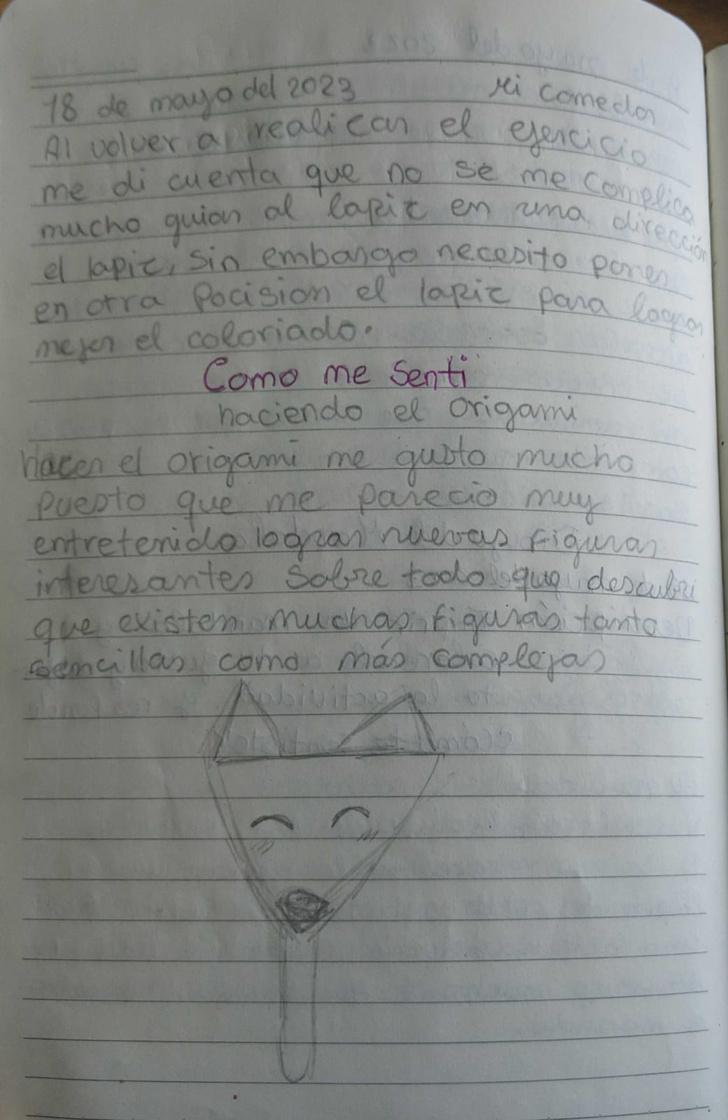 18 de mayo del 2023 Mi comedor
Al volver a realicar el ejercicio
me di cuenta que no se me complica
mucho guiar al lapiz en una dirección
el lapiz, sin embargo necesito poner
en otra pocision el lapiz para lograr
mejor el coloriado.
Como me senti
haciendo el origami
Hacer el origami me gusto mucho
puesto que me parecio muy
entretenido lograr nuevas figuras
interesantes sobre todo que descubri
que existen muchas figuras tanto
sencillas como más complejas